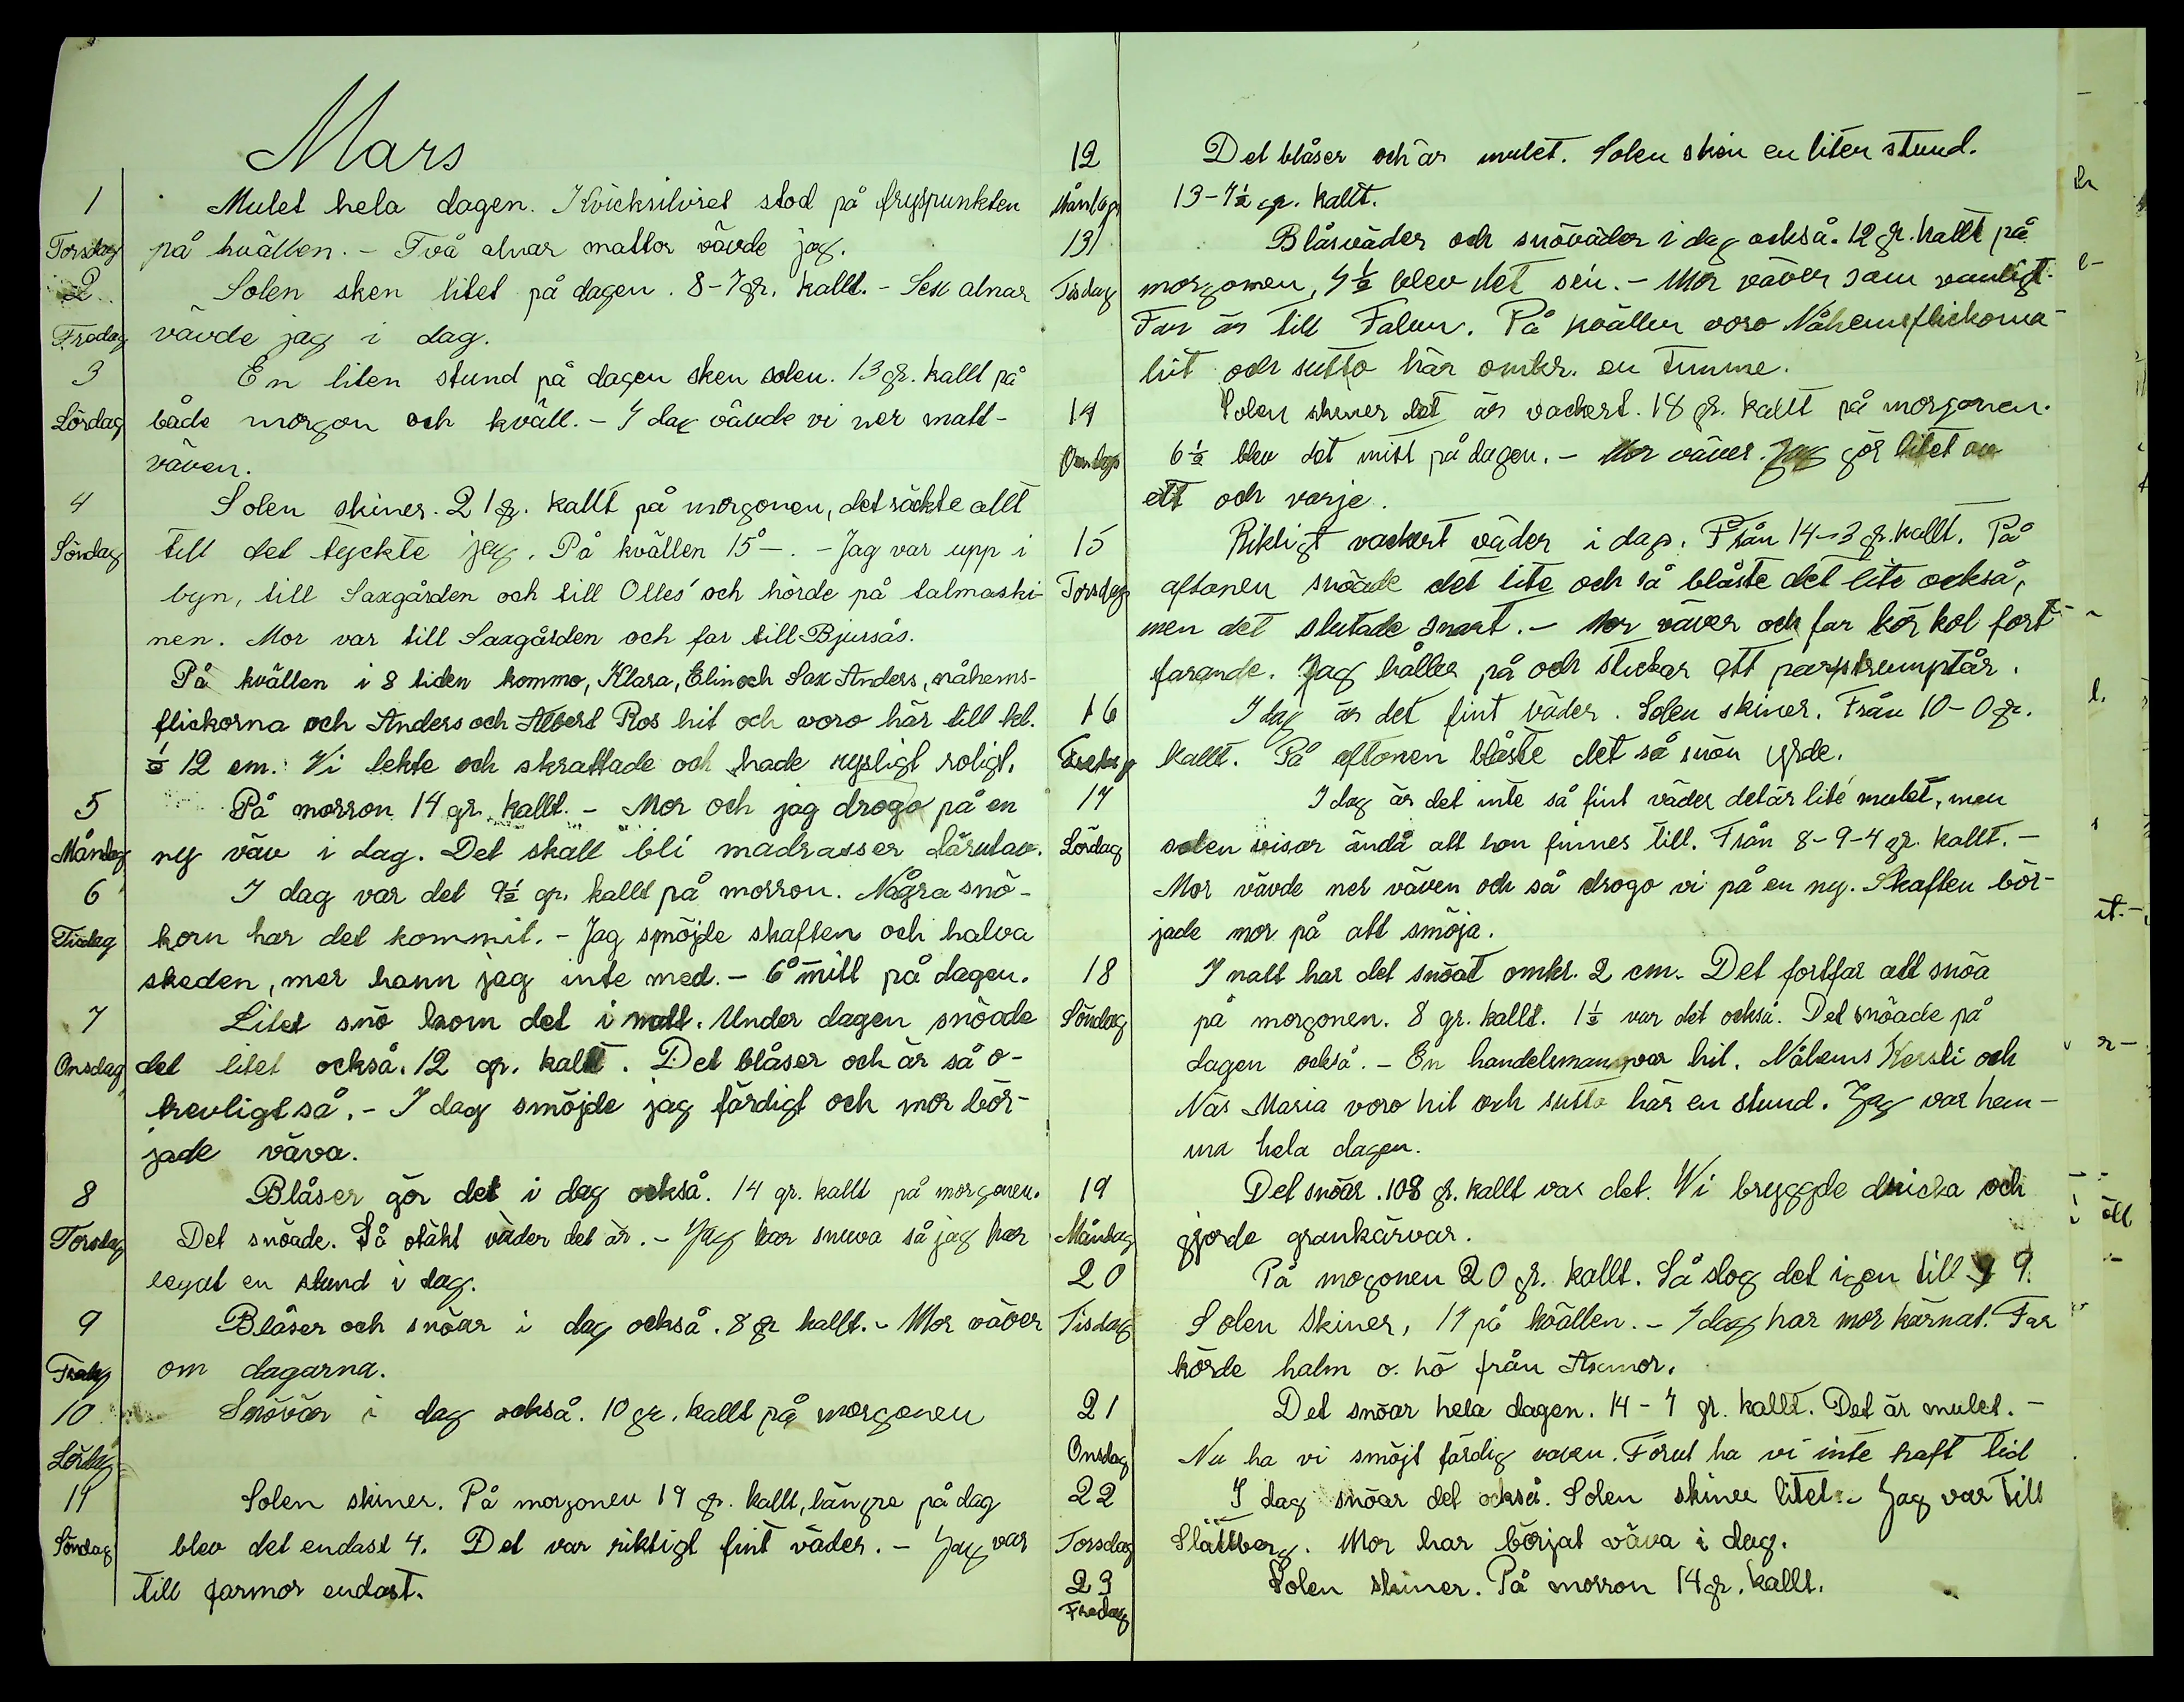 Mars
1 Mulet hela dagen. Kvicksilvret stod på fryspunkten
Torsdag på kvällen. - Två alnar mattor vävde jag.
2 Solen sken litet på dagen. 8-7 gr. kallt. - Sex alnar
Fredag vävde jag i dag.
3 En liten stund på dagen sken solen. 13 gr. kallt på
Lördag både morgon och kväll. - I dag vävde vi ner matt-
väven.
4 Solen skiner. 21 gr. kallt på morgonen, det räckte allt
Söndag till det tyckte jag. På kvällen 15° -. - Jag var upp i
byn, till Saxgården och till Olles' och hörde på talmaski-
nen. Mor var till Saxgården och far till Bjursås.
På kvällen i 8 tiden kommo, Klara, Elin och Sax Anders, nåhems-
flickorna och Anders och Albert Ros hit och voro här till kl.
½ 12 em. Vi lekte och skrattade och hade rysligt roligt.
5 På morron 14 gr. kallt. - Mor och jag drogo på en
Måndag ny väv i dag. Det skall bli madrasser därutav.
6 I dag var det 9½ gr. kallt på morron. Några snö-
Tisdag korn har det kommit. - Jag smöjde skaften och halva
skeden, mer hann jag inte med. - 6° mitt på dagen.
7 Litet snö kom det i natt. Under dagen snöade
Onsdag det litet också. 12 gr. kallt. Det blåser och är så o-
trevligt så. - I dag smöjde jag färdigt och mor bör-
jade väva.
8 Blåser gör det i dag också. 14 gr. kallt på morgonen.
Torsdag Det snöade. Så otäkt väder det är. - Jag har snuva så jag har
legat en stund i dag.
9 Blåser och snöar i dag också. 8 gr kallt. - Mor väver
Fredag om dagarna.
10 Snöväder i dag också. 10 gr. kallt på morgonen
Lördag
11 Solen skiner. På morgonen 19 gr. kallt, längre på dag
Söndag blev det endast 4. Det var riktigt fint väder. - Jag var
till farmor endast.
12 Det blåser och är mulet. Solen sken en liten stund.
Måndag 13-7½ gr. kallt.
13 Blåsväder och snöväder i dag också. 12 gr. kallt på
Tisdag morgonen, 4½ blev det sen. - Mor väver som vanligt.
Far är till Falun. På kvällen voro Nåhemsflickorna
hit och sutto här omkr. en timme.
14 Solen skiner det är vackert. 18 gr. kallt på morgonen.
Onsdag 6½ blev det mitt på dagen. - Mor väver. Jag gör litet av
ett och varje.
15 Riktigt vackert väder i dag. Från 14-3 gr. kallt. På
Torsdag aftonen snöade det lite och så blåste det lite också,
men det slutade snart. - Mor väver och far kör kol fort
farande. Jag håller på och stickar ett par strumptår.
16 I dag är det fint väder. Solen skiner. Från 10-0 gr.
Fredag kallt. På aftonen blåste det så snön yrde.
17 I dag är det inte så fint väder det är lite mulet, men
Lördag solen visar ändå att hon finnes till. Från 8-9-4 gr. kallt. -
Mor vävde ner väven och så drogo vi på en ny. Skaften bör-
jade mor på att smöja.
18 I natt har det snöat omkr. 2 cm. Det fortfar att snöa
Söndag på morgonen. 8 gr. kallt. 1½ var det också. Det snöade på
dagen också. - En handelsman var hit. Nåhems Kersti och
Näs Maria voro hit och sutto här en stund. Jag var hem-
ma hela dagen.
19 Det snöar. 108 gr. kallt var det. Vi bryggde dricka och
Måndag gjorde grankärvar.
20 På mogonen 20 gr. kallt. Så slog det igen till 9.
Tisdag Solen skiner, 17 på kvällen. - I dag har mor kärnat. Far
körde halm o. hö från Axmor.
21 Det snöar hela dagen. 14-7 gr. kallt. Det är mulet. -
Onsdag Nu ha vi smöjt färdig vaven. Förut ha vi inte haft tid
22 I dag snöar det också. Solen skiner litet. - Jag var till
Torsdag Slättberg. Mor har börjat väva i dag.
23 Solen skiner. På morron 14 gr. kallt.
Fredag